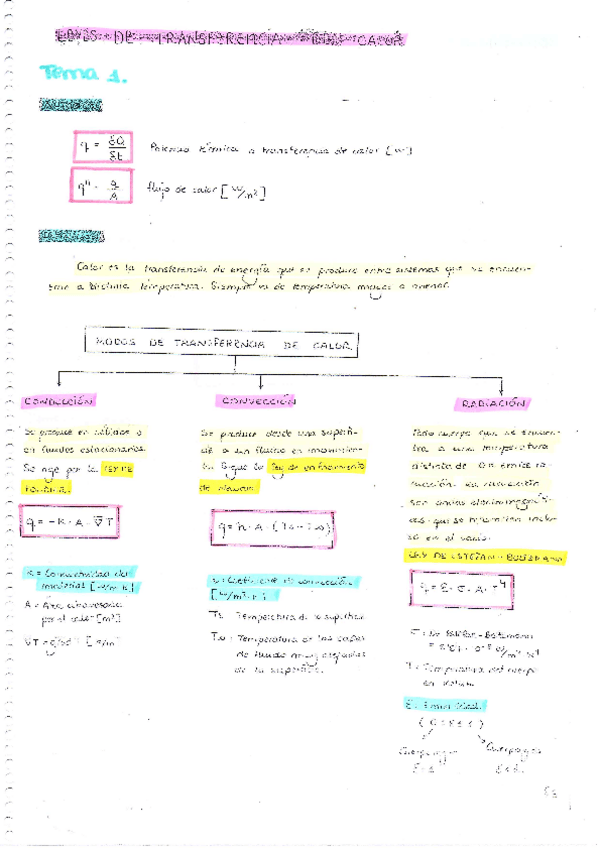 DE TRANSFERENCIA DE CALOR
Tema 1.
q = δQ/δt Potencia térmica o transferencia de calor [W]
q'' = q/A flujo de calor [W/m²]
Calor es la transferencia de energía que se produce entre sistemas que se encuen-
tran a distinta temperatura. Siempre va de temperatura mayor a menor.
MODOS DE TRANSFERENCIA DE CALOR
CONDUCCIÓN
Se produce en sólidos o
en fluidos estacionarios.
Se rige por la LEY DE
FOURIER.
q = -K · A · ∇T
K = Conductividad del
material [W/m·K]
A = Área atravesada
por el calor [m²]
CONVECCIÓN
Se produce desde una superfi-
cie a un fluido en movimien-
to. Sigue la ley de enfriamiento
de Newton.
q = h · A · (Ts - T∞)
h = Coeficiente de convección
[W/m²·K]
Ts = Temperatura de la superficie
T∞ = Temperatura de las capas
de fluido muy alejadas
de la superficie.
RADIACIÓN
Todo cuerpo que se encuen-
tra a una temperatura
distinta de 0K emite ra-
diación. La radiación
son ondas electromagnéti-
cas que se transmiten inclu-
so en el vacío.
LEY DE STEFAN-BOLTZMANN
q = ε · σ · A · T⁴
σ = Stefan-Boltzmann
W/m² K⁴
T = Temperatura del cuerpo
ε = Emisividad.
(0 ≤ ε ≤ 1)